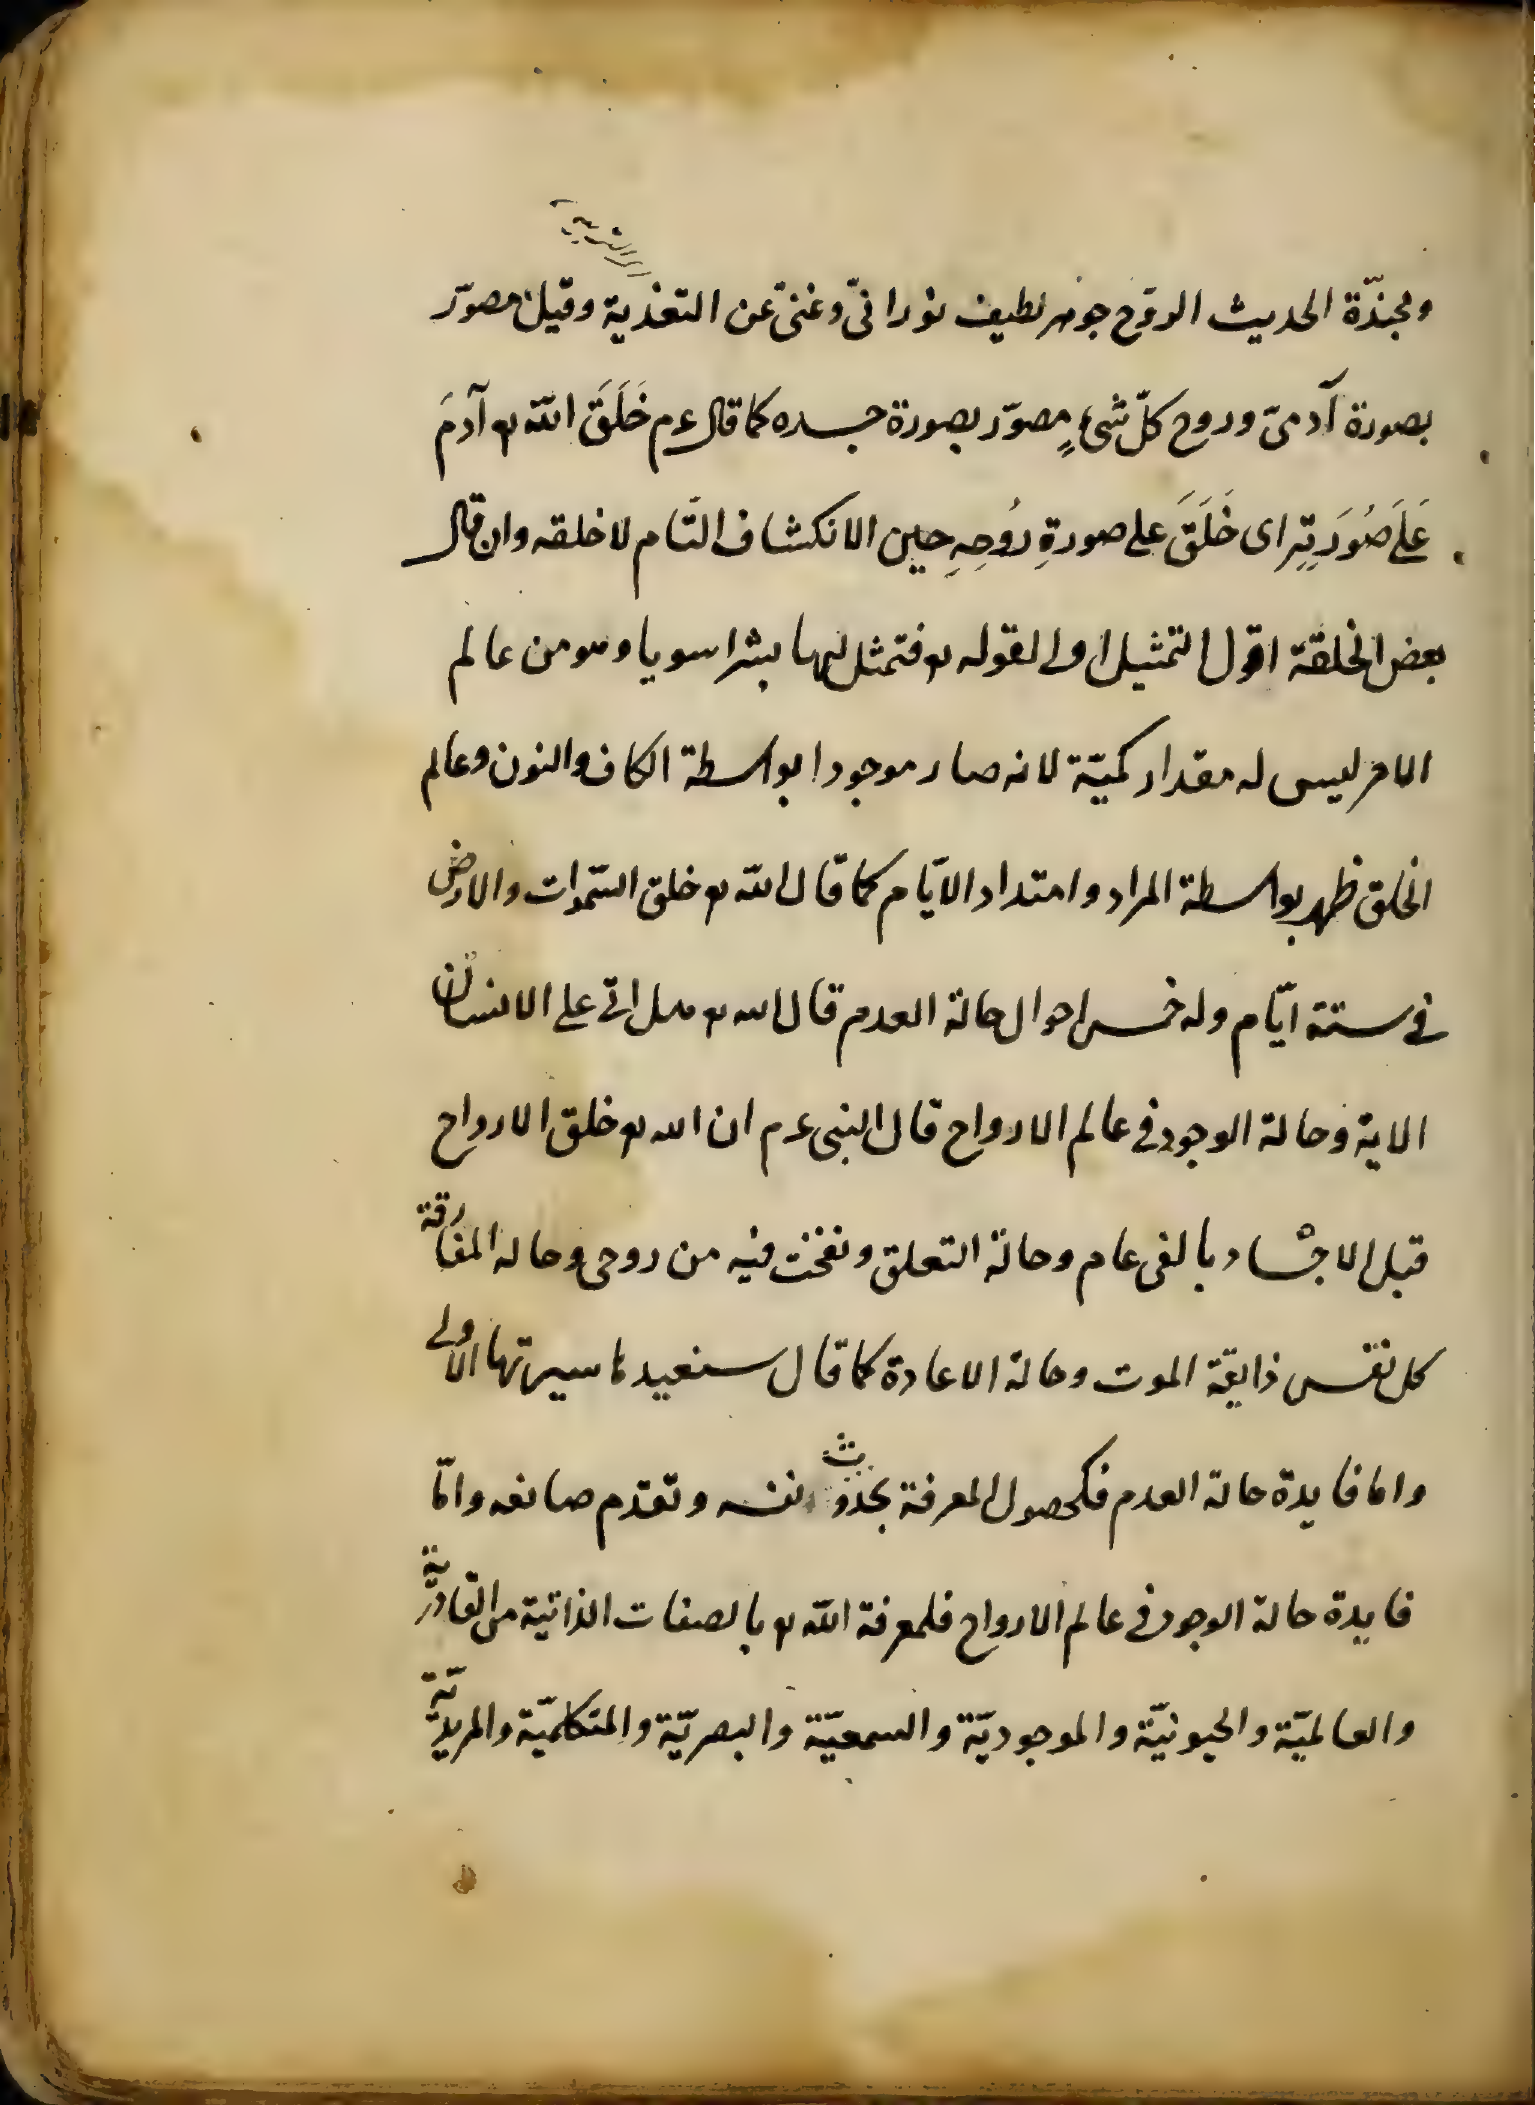 ومجندّة الحديث الروح جوهر لطيف نورانىّ وغنىّ عن التغذية وقيل مصوّر
بصورة آدمىّ وروح كلّ شئٍ مصوّر بصورة جسده كما قال عم خَلَقَ اللّه تع آدمَ
عَلَى صُورَتِهِ اى خَلَقَ على صورةِ رُوحِهِ حين الانكشاف التّام لا خلقه وان قال
بعض الخلقة اقول التمثيل اولى لقوله تع فتمثل لها بشرا سويا وهو من عالم
الامر ليس له مقدار كميّة لانه صار موجودا بواسطة الكاف والنون وعالم
الخلق ظهر بواسطة المراد وامتداد الايّام كما قال اللّه تع خلق السّموات والارض
فى ستة ايّام وله خمس احوال حالة العدم قال الله تع هل اتى على الانسان
الاية وحالة الوجود فى عالم الارواح قال النبى عم ان الله تع خلق الارواح
قبل الاجساد بالفى عام وحالة التعلق ونفخت فيه من روحى وحالة المفارقة
كل نفس ذايقة الموت وحالة الاعادة كما قال سنعيدها سيرتها الاولى
واما فايدة حالة العدم فلحصول المعرفة بحدوث نفسه وتقدّم صانعه وامّا
فايدة حالة الوجود فى عالم الارواح فلمعرفة اللّه تع بالصفات الذاتية من القادريّة
والعالميّة والحيونيّة والموجوديّة والسمعيّة والبصريّة والمتكلميّة والمريديّة